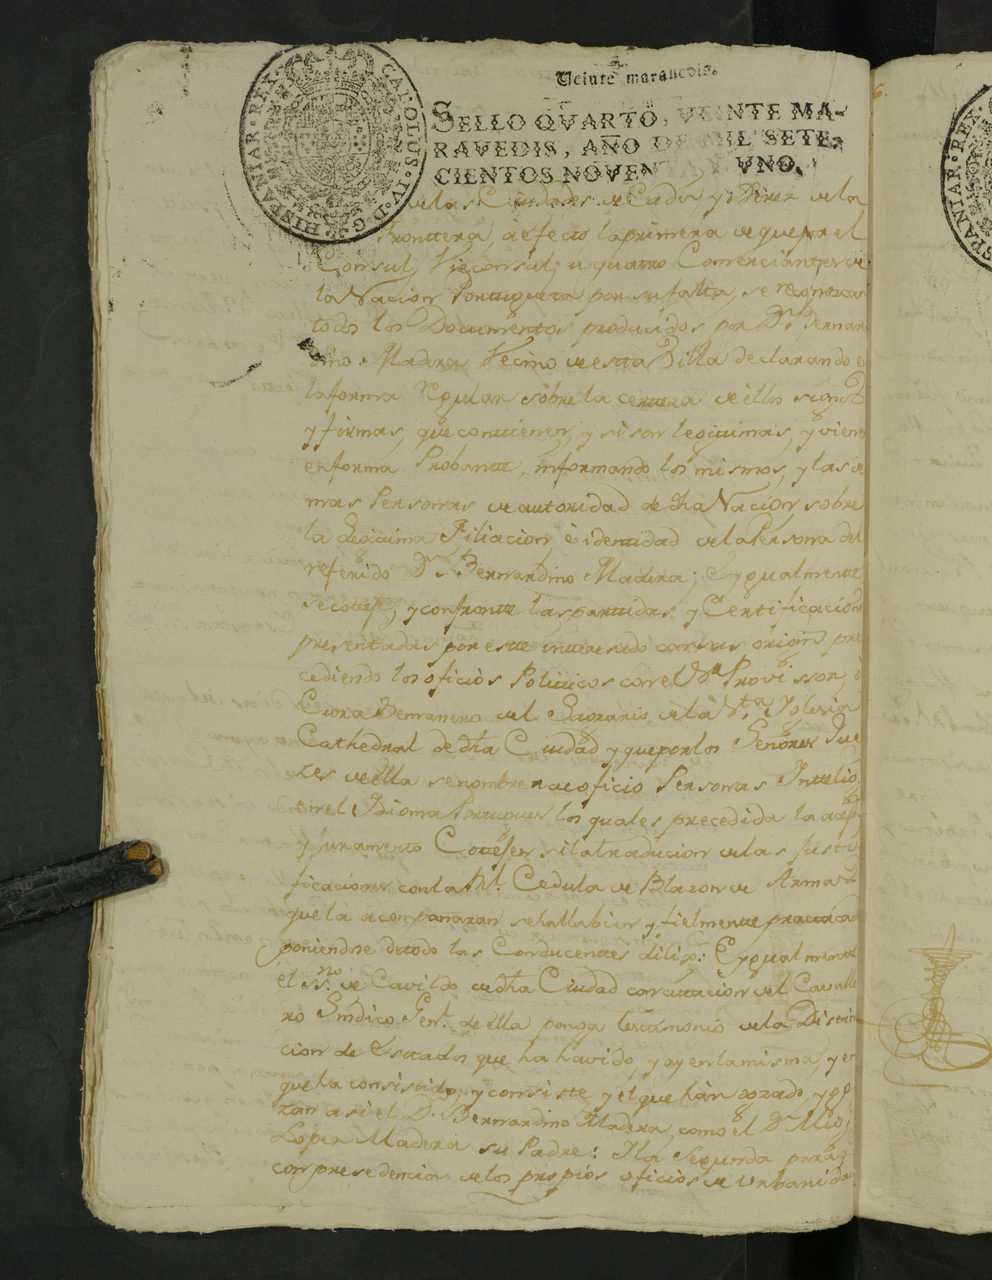 HISPANIAR·REX· CAROLUS·IV·D·G·
Veinte marauedis.
SELLO QVARTO, VEINTE MA-
RAVEDIS, AÑO DE MIL SETE-
CIENTOS NOVENTA Y VNO.
de las Ciudades de Cadiz, y Xerez de la
Fronttera, a efecto la primera de que por el
Consul, Viceconsul, u quatro Comerciantes de
la Nacion Portuguesa por su falta, se reconozcan
todos los Documentos producidos por Dn. Bernar
dino Madera Vecino de estta Villa declarando en
la forma regular sobre la certteza de ellos signos
y firmas, que conttienen, y si son legittimas, y vienen
en forma Probantte, informando los mismos, y las de
mas Personas de autoridad de dha Nacion, sobre
la Legittima Filiacion, è identidad de la Persona del
referido Dn. Bernardino Madera; E ygualmentte
se coteje, y confrontte las parttidas, y Certificacion
presentadas por estte intteresado con sus origins. pre
cediendo los oficios Politticos con el Sr. Provissor, ò
Cura Benemero del Sagrario de la Sta. Yglesia
Cathedral de dha Ciudad y que por los Señores Jue
zes de ella se nombren de oficio Personas Intelig.
en el Idioma Portugues los quales precedida la acepn.
y juramento Cottejen si la traducion de las justi
ficaciones con la Rl. Cedula de Blazon de Armas
que la acompañaran, se halla bien y fielmente practicada
poniendose de todo las Conducentes dilig.s: E ygualmente
el ssno. de Cavildo de dha Ciudad con citacion del Cavalle
ro Sindico Genl. de ella ponga testimonio de la Distin
cion de Estados que ha havido, y oy en la misma, y en
que ha consistido, y consiste y el que hàn gozado, y go
zan asi el Dn. Bernardino Madera, como el Dn. Mig.l
Lopez Madera su Padre: Y la Segunda para q.
con presedencia de los propios oficios de Urbanidad
6.